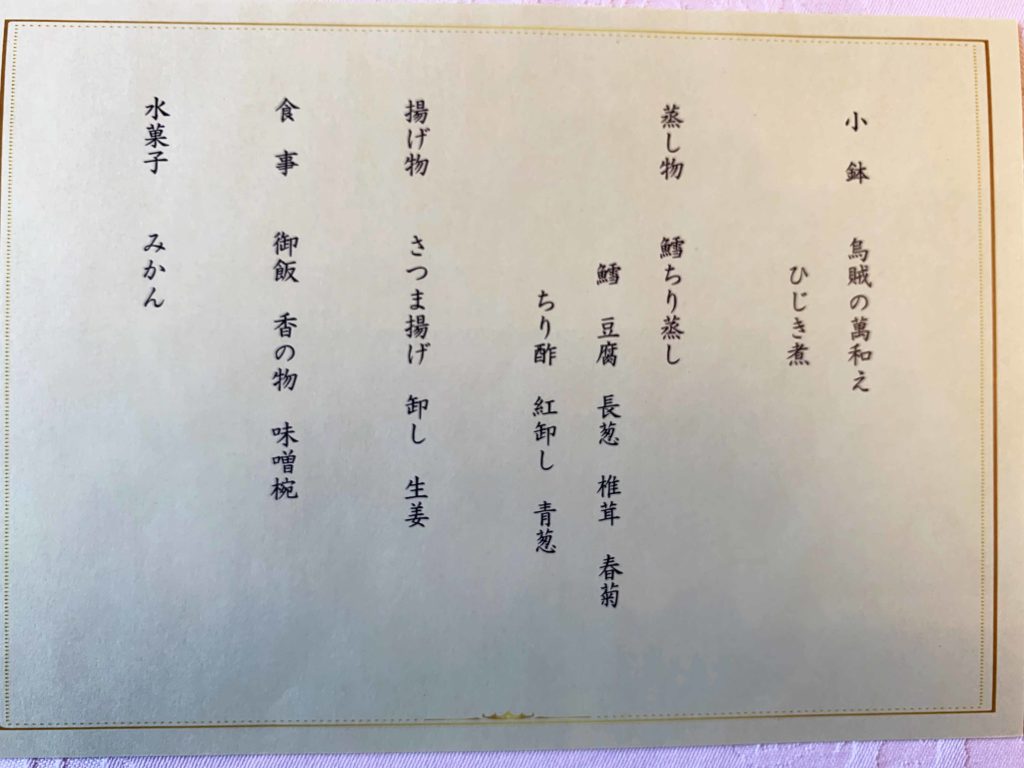 小　鉢　　烏賊の萬和え
ひじき煮
蒸し物　　鱈ちり蒸し
鱈　豆腐　長葱　椎茸　春菊
ちり酢　紅卸し　青葱
揚げ物　　さつま揚げ　卸し　生姜
食　事　　御飯　香の物　味噌椀
水菓子　　みかん